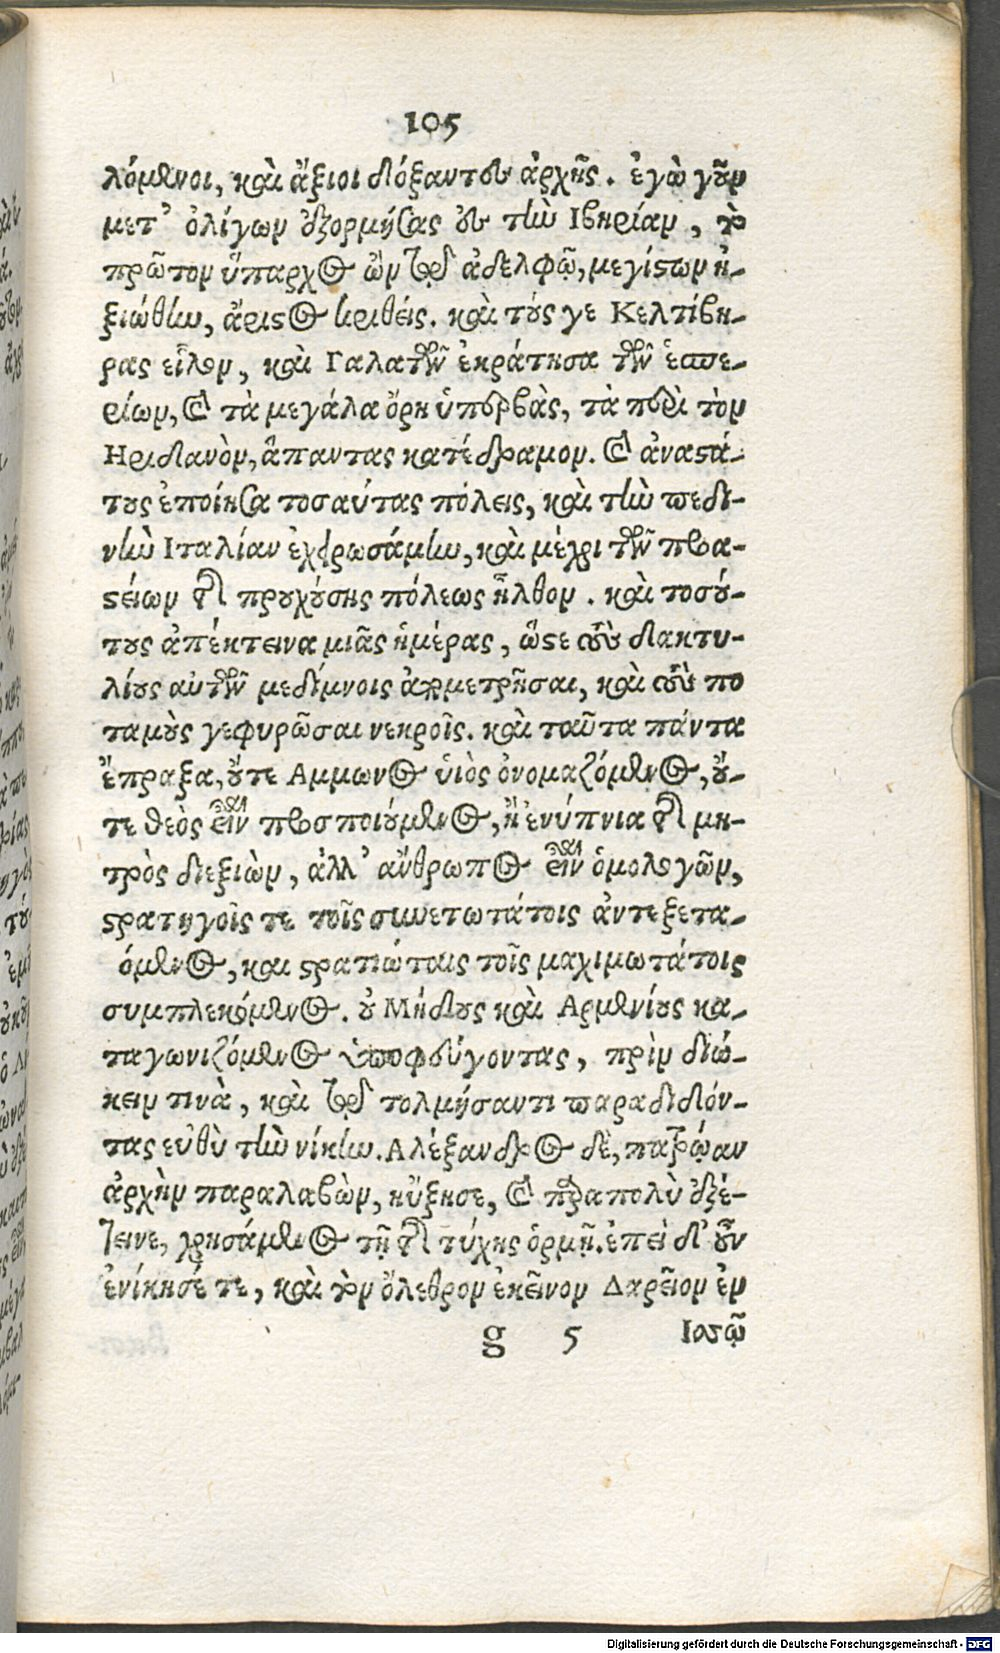 105
λόμενοι, καὶ ἄξιοι δόξαντες ἀρχῆς. ἐγὼ γοῦν
μετ᾽ ὀλίγων ἐξορμήσας ἐς τὴν Ιβηρίαν, τὸ
πρῶτον ὕπαρχος ὢν τῷ ἀδελφῷ, μεγίστων ἠ-
ξιώθην, ἄριστος κριθείς. καὶ τούς γε Κελτίβη-
ρας εἷλον, καὶ Γαλατῶν ἐκράτησα τῶν ἑσπε-
ρίων, καὶ τὰ μεγάλα ὄρη ὑπερβὰς, τὰ περὶ τὸν
Ηριδανὸν, ἅπαντας κατέδραμον. καὶ ἀναστά-
τους ἐποίησα τοσαύτας πόλεις, καὶ τὴν πεδι-
νὴν Ιταλίαν ἐχειρωσάμην, καὶ μέχρι τῶν προα-
στείων τῆς προυχούσης πόλεως ἦλθον. καὶ τοσού-
τους ἀπέκτεινα μιᾶς ἡμέρας, ὥστε τοὺς δακτυ-
λίους αὐτῶν μεδίμνοις ἀπομετρῆσαι, καὶ τοὺς πο
ταμοὺς γεφυρῶσαι νεκροῖς. καὶ ταῦτα πάντα
ἔπραξα, οὔτε Αμμωνος ὑιὸς ὀνομαζόμενος, οὔ-
τε θεὸς εἶναι προσποιούμενος, ἢ ἐνύπνια τῆς μη-
τρὸς διεξιὼν, ἀλλ᾽ ἄνθρωπος εἶναι ὁμολογῶν,
στρατηγοῖς τε τοῖς συνετωτάτοις ἀντεξετα-
όμενος, και στρατιώταις τοῖς μαχιμωτάτοις
συμπλεκόμενος. οὐ Μήδους καὶ Αρμενίους κα-
ταγωνιζόμενος ὑποφεύγοντας, πρὶν διώ-
κειν τινὰ, καὶ τῷ τολμήσαντι παραδιδόν-
τας εὐθὺ τὴν νίκην. Αλέξανδρος δὲ, πατρῴαν
ἀρχὴν παραλαβὼν, ηὔξησε, καὶ παραπολὺ ἐξέ-
τεινε, χρησάμενος τῇ τῆς τύχης ὁρμῇ. ἐπεὶ δ᾽ οὖν
ἐνίκησέ τε, καὶ τὸν ὄλεθρον ἐκεῖνον Δαρεῖον ἐν
g 5 Ισσῷ
Digitalisierung gefördert durch die Deutsche Forschungsgemeinschaft - DFG